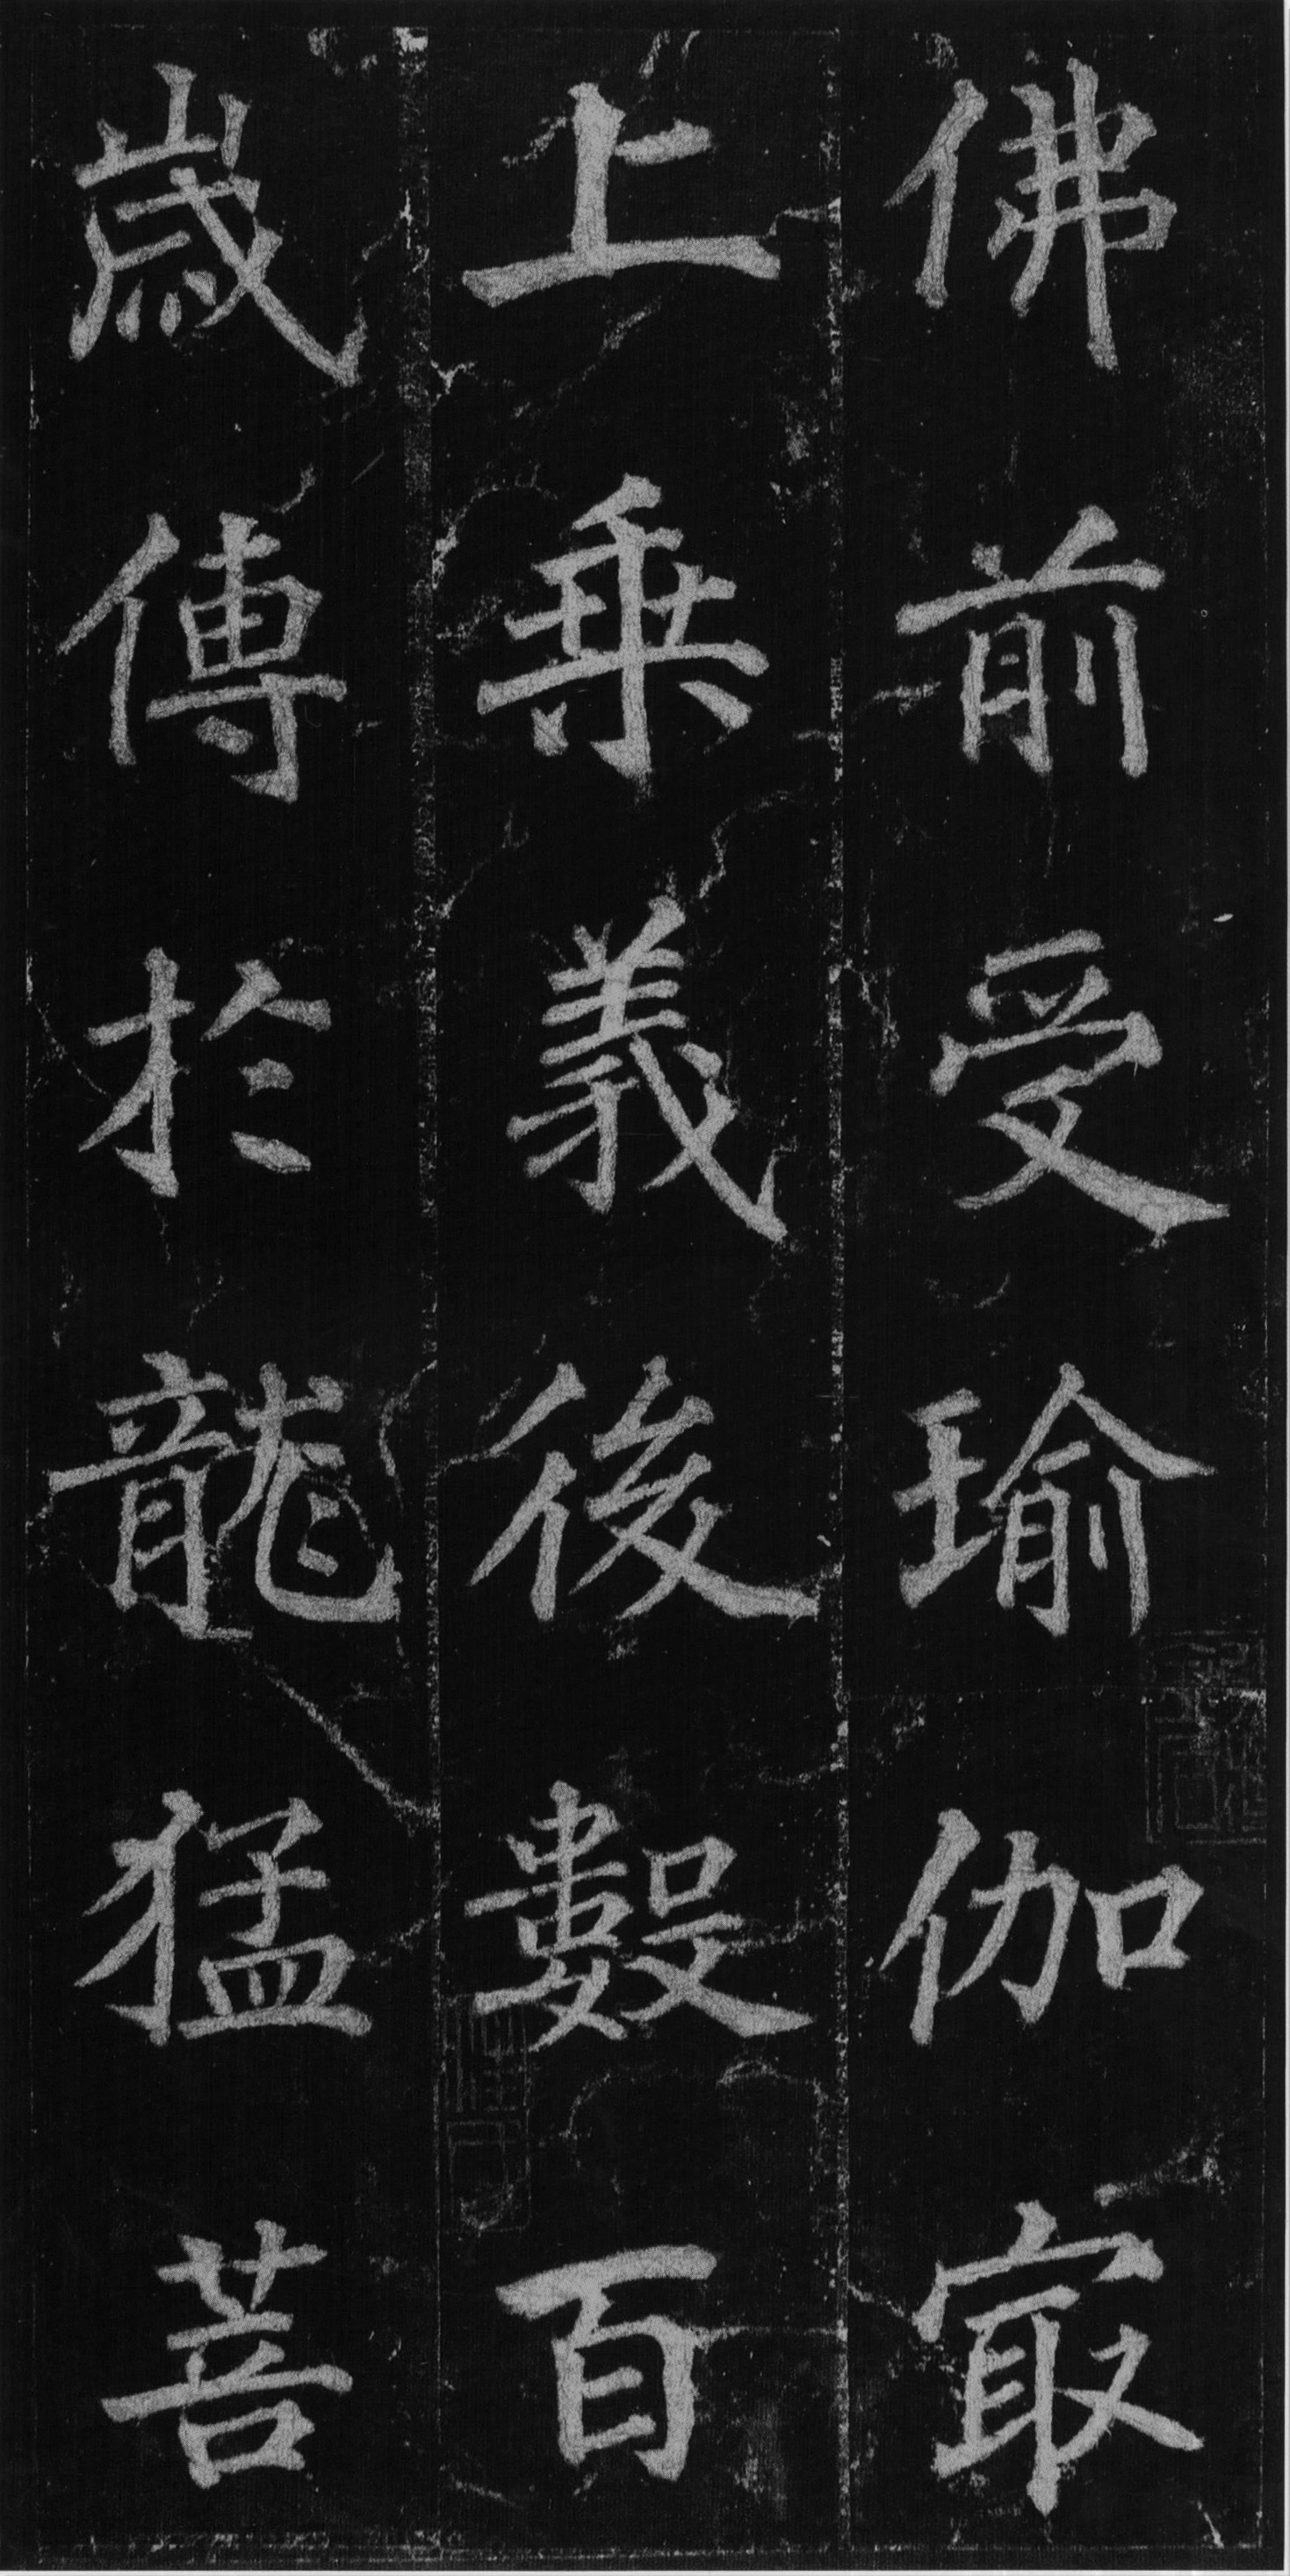 佛前受瑜伽冣
上乗義後數百
歳傳於龍猛菩